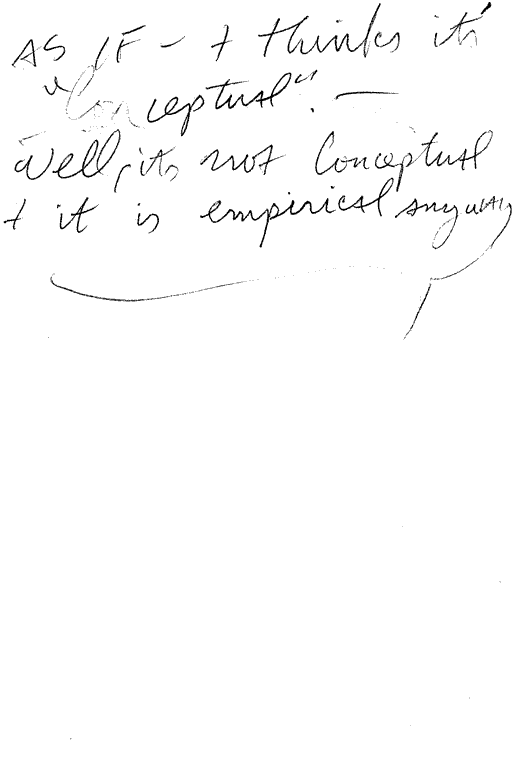 AS IF - + thinks it's
"Conceptual". —
Well, its not Conceptual
+ it is empirical anyway